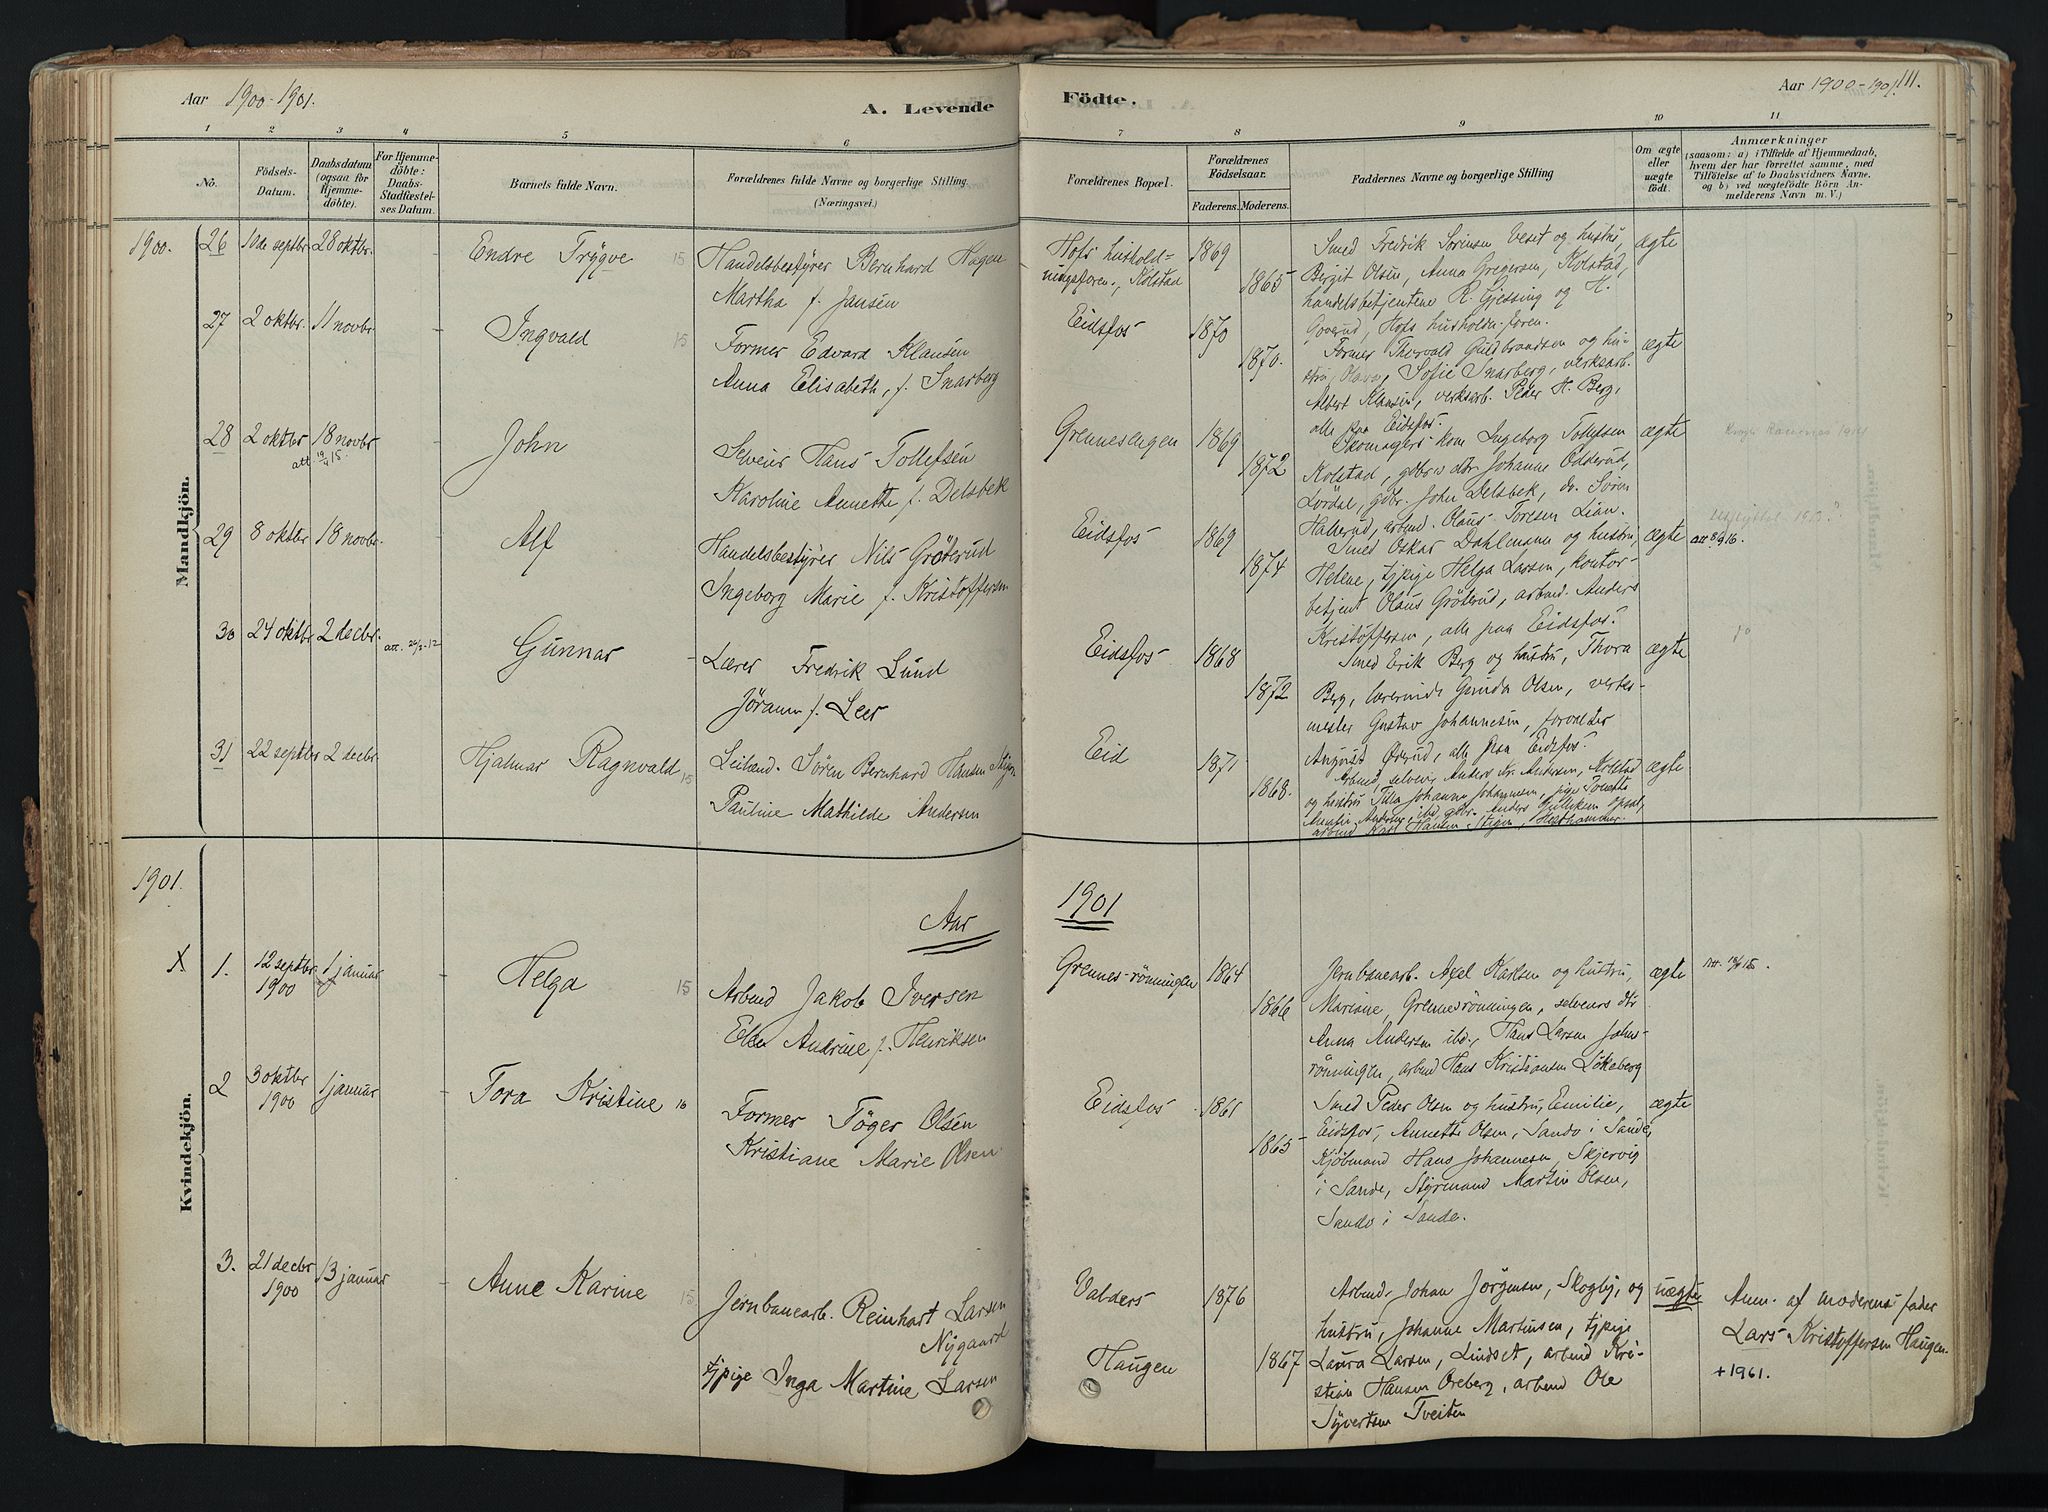 Aar 1900-1901.
A. Levende
Födte.
Aar 1900-1901.
111.
1 2 3 4 5 6 7 8 9 10 11
No.
Födsels-
Datum.
Daabsdatum
(ogsaa for
Hjemme-
döbte).
For Hjemme-
döbte:
Daabs-
Stadfæstel-
ses Datum.
Barnets fulde Navn.
Forældrenes fulde Navne og borgerlige Stilling.
(Næringsvei.)
Forældrenes Bopæl.
Forældrenes
Födselsaar.
Faderens. Moderens.
Faddernes Navne og borgerlige Stilling
Om ægte
eller
uægte
født.
Anmærkninger
(saasom: a) i Tilfælde af Hjemmedaab,
hvem der har forrettet samme, med
Tilföielse af to Daabsvidners Navne,
og b) ved uægtefödte Börn An-
melderens Navn m. V.)
Mandkjön.
1900. 26 10de septbr. 28 oktbr. - Endre Trygve 15 Handelsbestyrer Bernhard Hagen
Martha f. Jansen
Hofs hushold-
ningsforen., Kolstad
1869
1865
Smed Fredrik Sørensen Veset og hustru,
Birgit Olsen, Anna Gregersen, Kolstad,
handelsbetjentene R. Gjessing og H.
Goverud, Hofs husholdn.foren.
ægte
27 2 oktbr. 11 novbr. - Ingvald 15 Former Edvard Klausen
Anna Elisabeth, f. Snarberg
Eidsfos
1870
1870.
Former Thorvald Guldbrandsen og hu-
stru, Olava, Sofie Snarberg, verksarb.
Albert Klausen, verksarb. Peder H. Berg,
alle paa Eidsfos.
ægte
28 2 oktbr 18 novbr - John
att. 19/4 15.
Selveier Hans Tollefsen
Karoline Annette f. Delsbek
Grennesengen
1869
1872
Skomagers kone Ingeborg Tollefsen
Kolstad, gdbrs dtr Johanne Odderud,
Lördal, gdbr. John Delsbek, do. Sören
Hallerud, arbmd. Olaus Toresen Lian.
ægte
29 8 oktbr 18 novbr. - Alf
Handelsbestyrer Nils Gröterud
Ingeborg Marie f. Kristoffersen
Eidsfos
1869
1874
Smed Oskar Dahlmann og hustru,
Helene, tjpige Helga Larsen, kontor-
betjent Olaus Gröterud, arbmd. Anders
Kristoffersen, alle paa Eidsfos.
ægte
att 8/9 16.
30 24 oktbr 2 decbr. att. 26/3-12 Gunnar - Lærer Fredrik Lund
Jörann f. Leer
Eidsfos
1868
1872
Smed Erik Berg og hustru, Thora
Berg, lærerinde Gunda Olsen, verks-
mester Gustav Johannesen, forvalter
August Ørerud, alle paa Eidsfos.
ægte
31 22 septbr 2 decbr. - Hjalmar Ragnvald 15 Leilænd. Sören Bernhard Hansen Stigen
Pauline Mathilde Andersen
Eid
1871
1868.
Arbmd. selveier Anders Kr. Andersen, Kolstad
og hustru Tilla Johanne Johannesen, pige Josette
Amalie Andersen, ibd, gdbr. Anders Gulliksen Opsal,
arbmd Karl Hansen Stigen, Hesthammer.
ægte
1901.
Aar 1901
Kvindekjön.
X 1. 12 septbr. 1 januar - Helga 15 Arbmd Jakob Iversen
1900
Elen Andrine f. Henriksen
Grennes-rönningen
1864
1866
Jernbanearb. Axel Karlsen og hustru,
Mariane, Grennesrönningen, selveiers dtr
Anna Andersen ibd., Hans Larsen Johns-
rönningen, arbmd Hans Kristiansen Lökeberg
ægte
att. 18/4 15.
2 3 oktbr 1 januar - Tora Kristine 16 Former Töger Olsen
1900
Kristiane Marie Olsen.
Eidsfos
1861
1865
Smed Peder Olsen og hustru, Emilie,
Eidsfos, Annette Olsen, Sando i Sande,
Kjöbmand Hans Johannesen, Skjervig
i Sande, Styrmand Martin Olsen,
Sando i Sande.
ægte
3. 21 decbr 13 januar - Anne Karine 15 Jernbanearb. Reinhart Larsen
1900
Nygaard
tjpige Inga Martine Larsen
Valders
Haugen
1876
1867
Arbmd. Johan Jørgensen, Skogly, og
hustru, Johanne Martinsen, tjpige
Laura Larsen, Lindset, arbmd Kri-
stian Hansen Oreberg, arbmd Ole
Syvertsen Tveiten
uægte
Anm. af moderens fader
Lars Kristoffersen Haugen.
+ 1961.